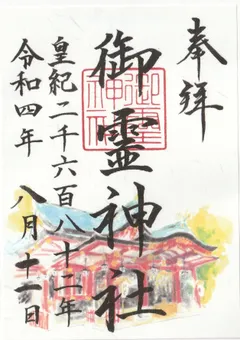 奉拝
御霊神社
皇紀二千六百八十二年
令和四年 八月十一日